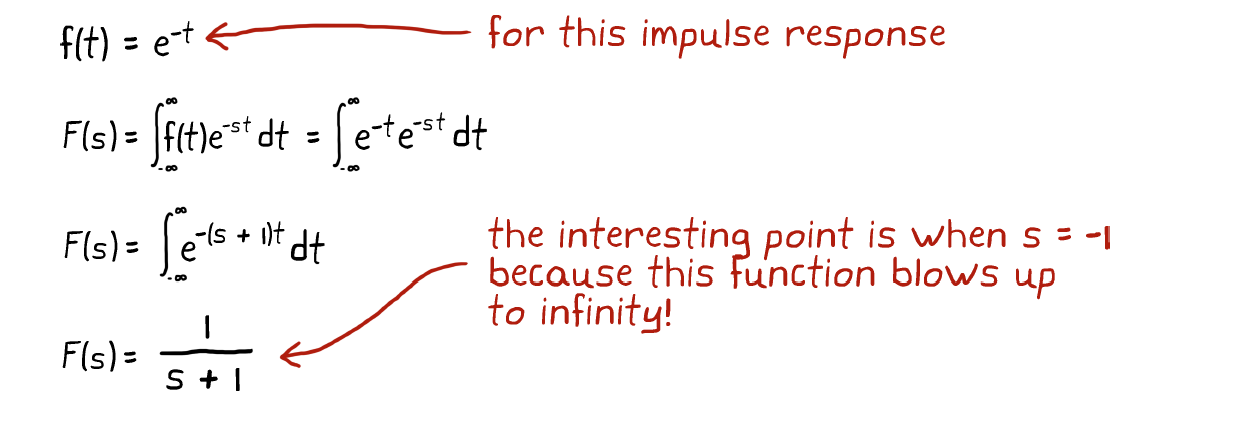 f(t) = e^-t for this impulse response
F(s) = ∫_-∞^∞ f(t)e^-st dt = ∫_-∞^∞ e^-t e^-st dt
F(s) = ∫_-∞^∞ e^-(s + 1)t dt
the interesting point is when s = -1
because this function blows up
to infinity!
F(s) = 1/(s + 1)